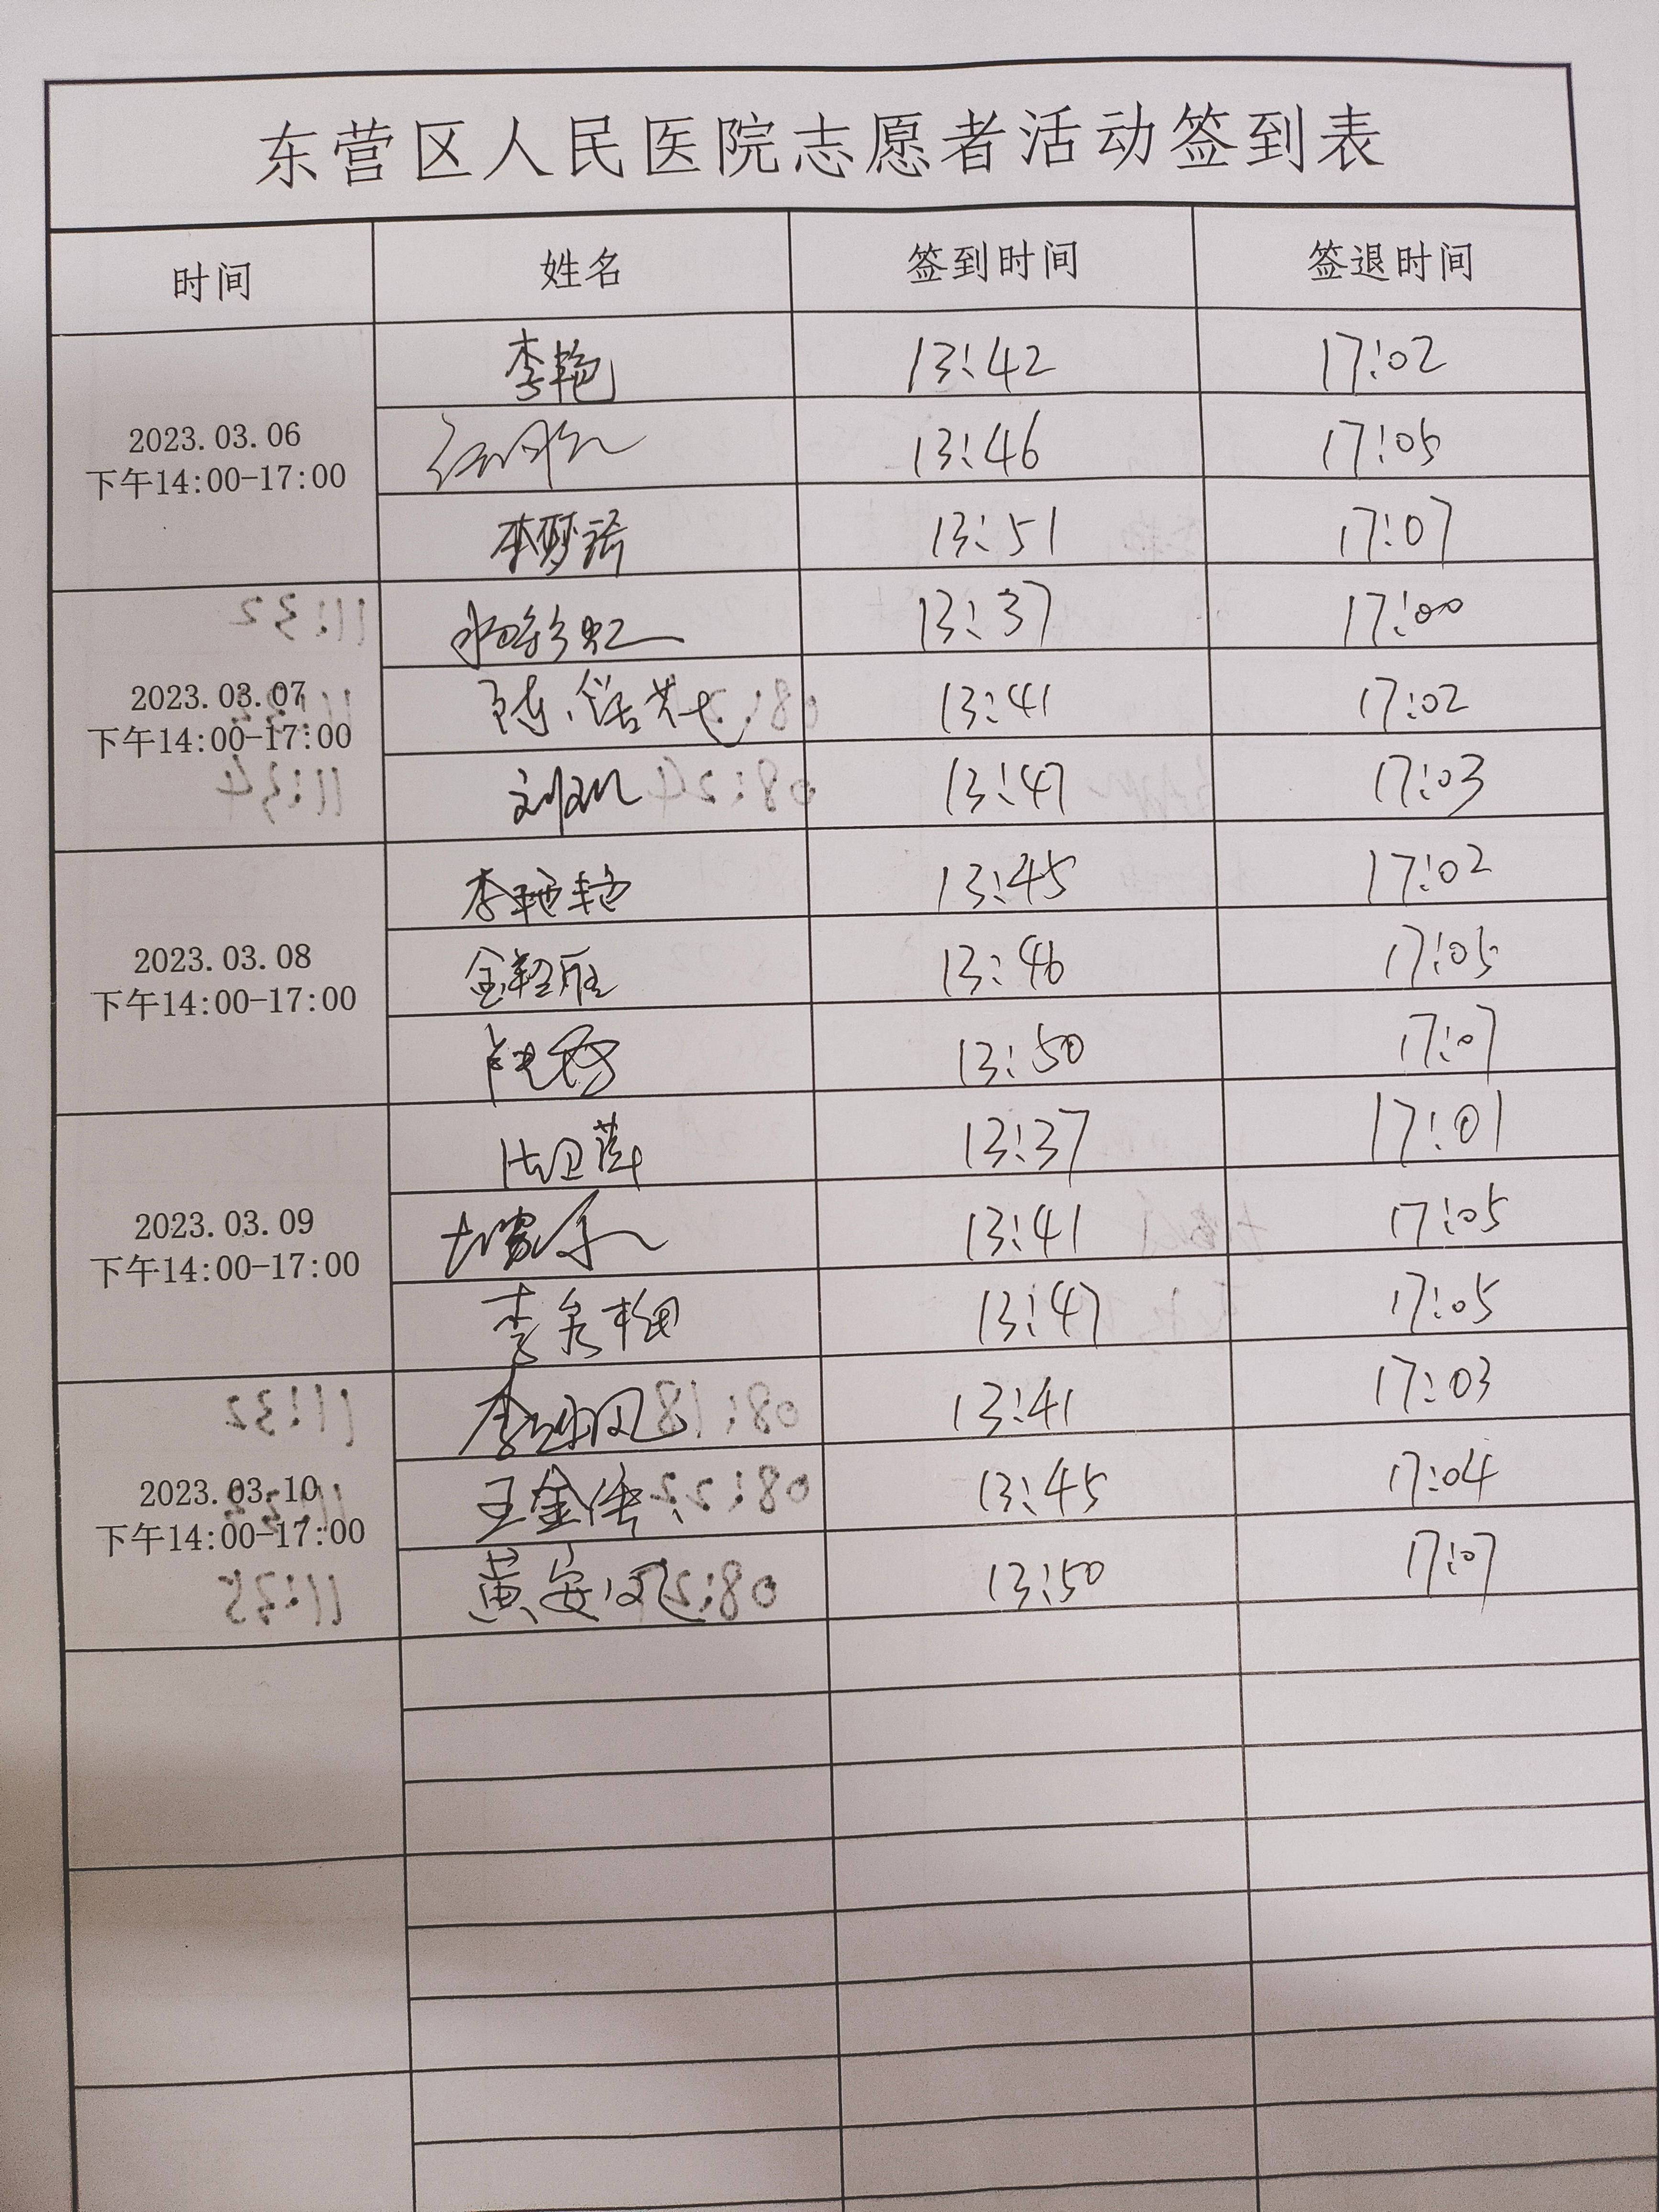 东营区人民医院志愿者活动签到表
时间 姓名 签到时间 签退时间
2023.03.06
下午14:00-17:00
李艳 13:42 17:02
13:46 17:05
李梦 13:51 17:07
2023.03.07
下午14:00-17:00
杨彩虹 13:37 17:00
陈 13:41 17:02
刘 13:47 17:03
2023.03.08
下午14:00-17:00
李艳艳 13:45 17:02
金 13:46 17:05
13:50 17:07
2023.03.09
下午14:00-17:00
13:37 17:01
13:41 17:05
李 13:47 17:05
2023.03.10
下午14:00-17:00
李 凤 13:41 17:03
王金 13:45 17:04
黄安 13:50 17:07